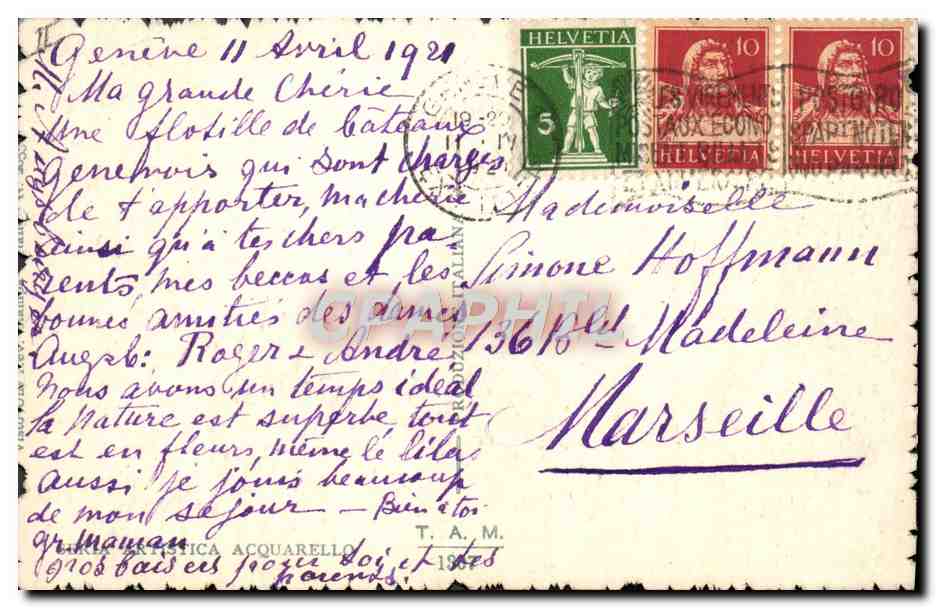 Genève 11 Avril 1921
Ma grande Chérie
Une flotille de bâteaux
Genevois qui sont chargés
de t'apporter, ma chérie
ainsi qu'à tes chers pa-
rents, mes beccos et les
bonnes amitiés des dames
Augsb: Roger & André
Nous avons un temps idéal
la nature est superbe, tout
est en fleurs, même le lilas
aussi je jouis beaucoup
de mon séjour — Bien à toi
gr. maman
gros baisers pour toi et tes
parents.
HELVETIA
5
10
HELVETIA
10
HELVETIA
Mademoiselle
Simone Hoffmann
136 Bld Madeleine
Marseille
PRODUZIONE ITALIANA
SERIA ARTISTICA ACQUARELLO
T. A. M.
CPAPHIL